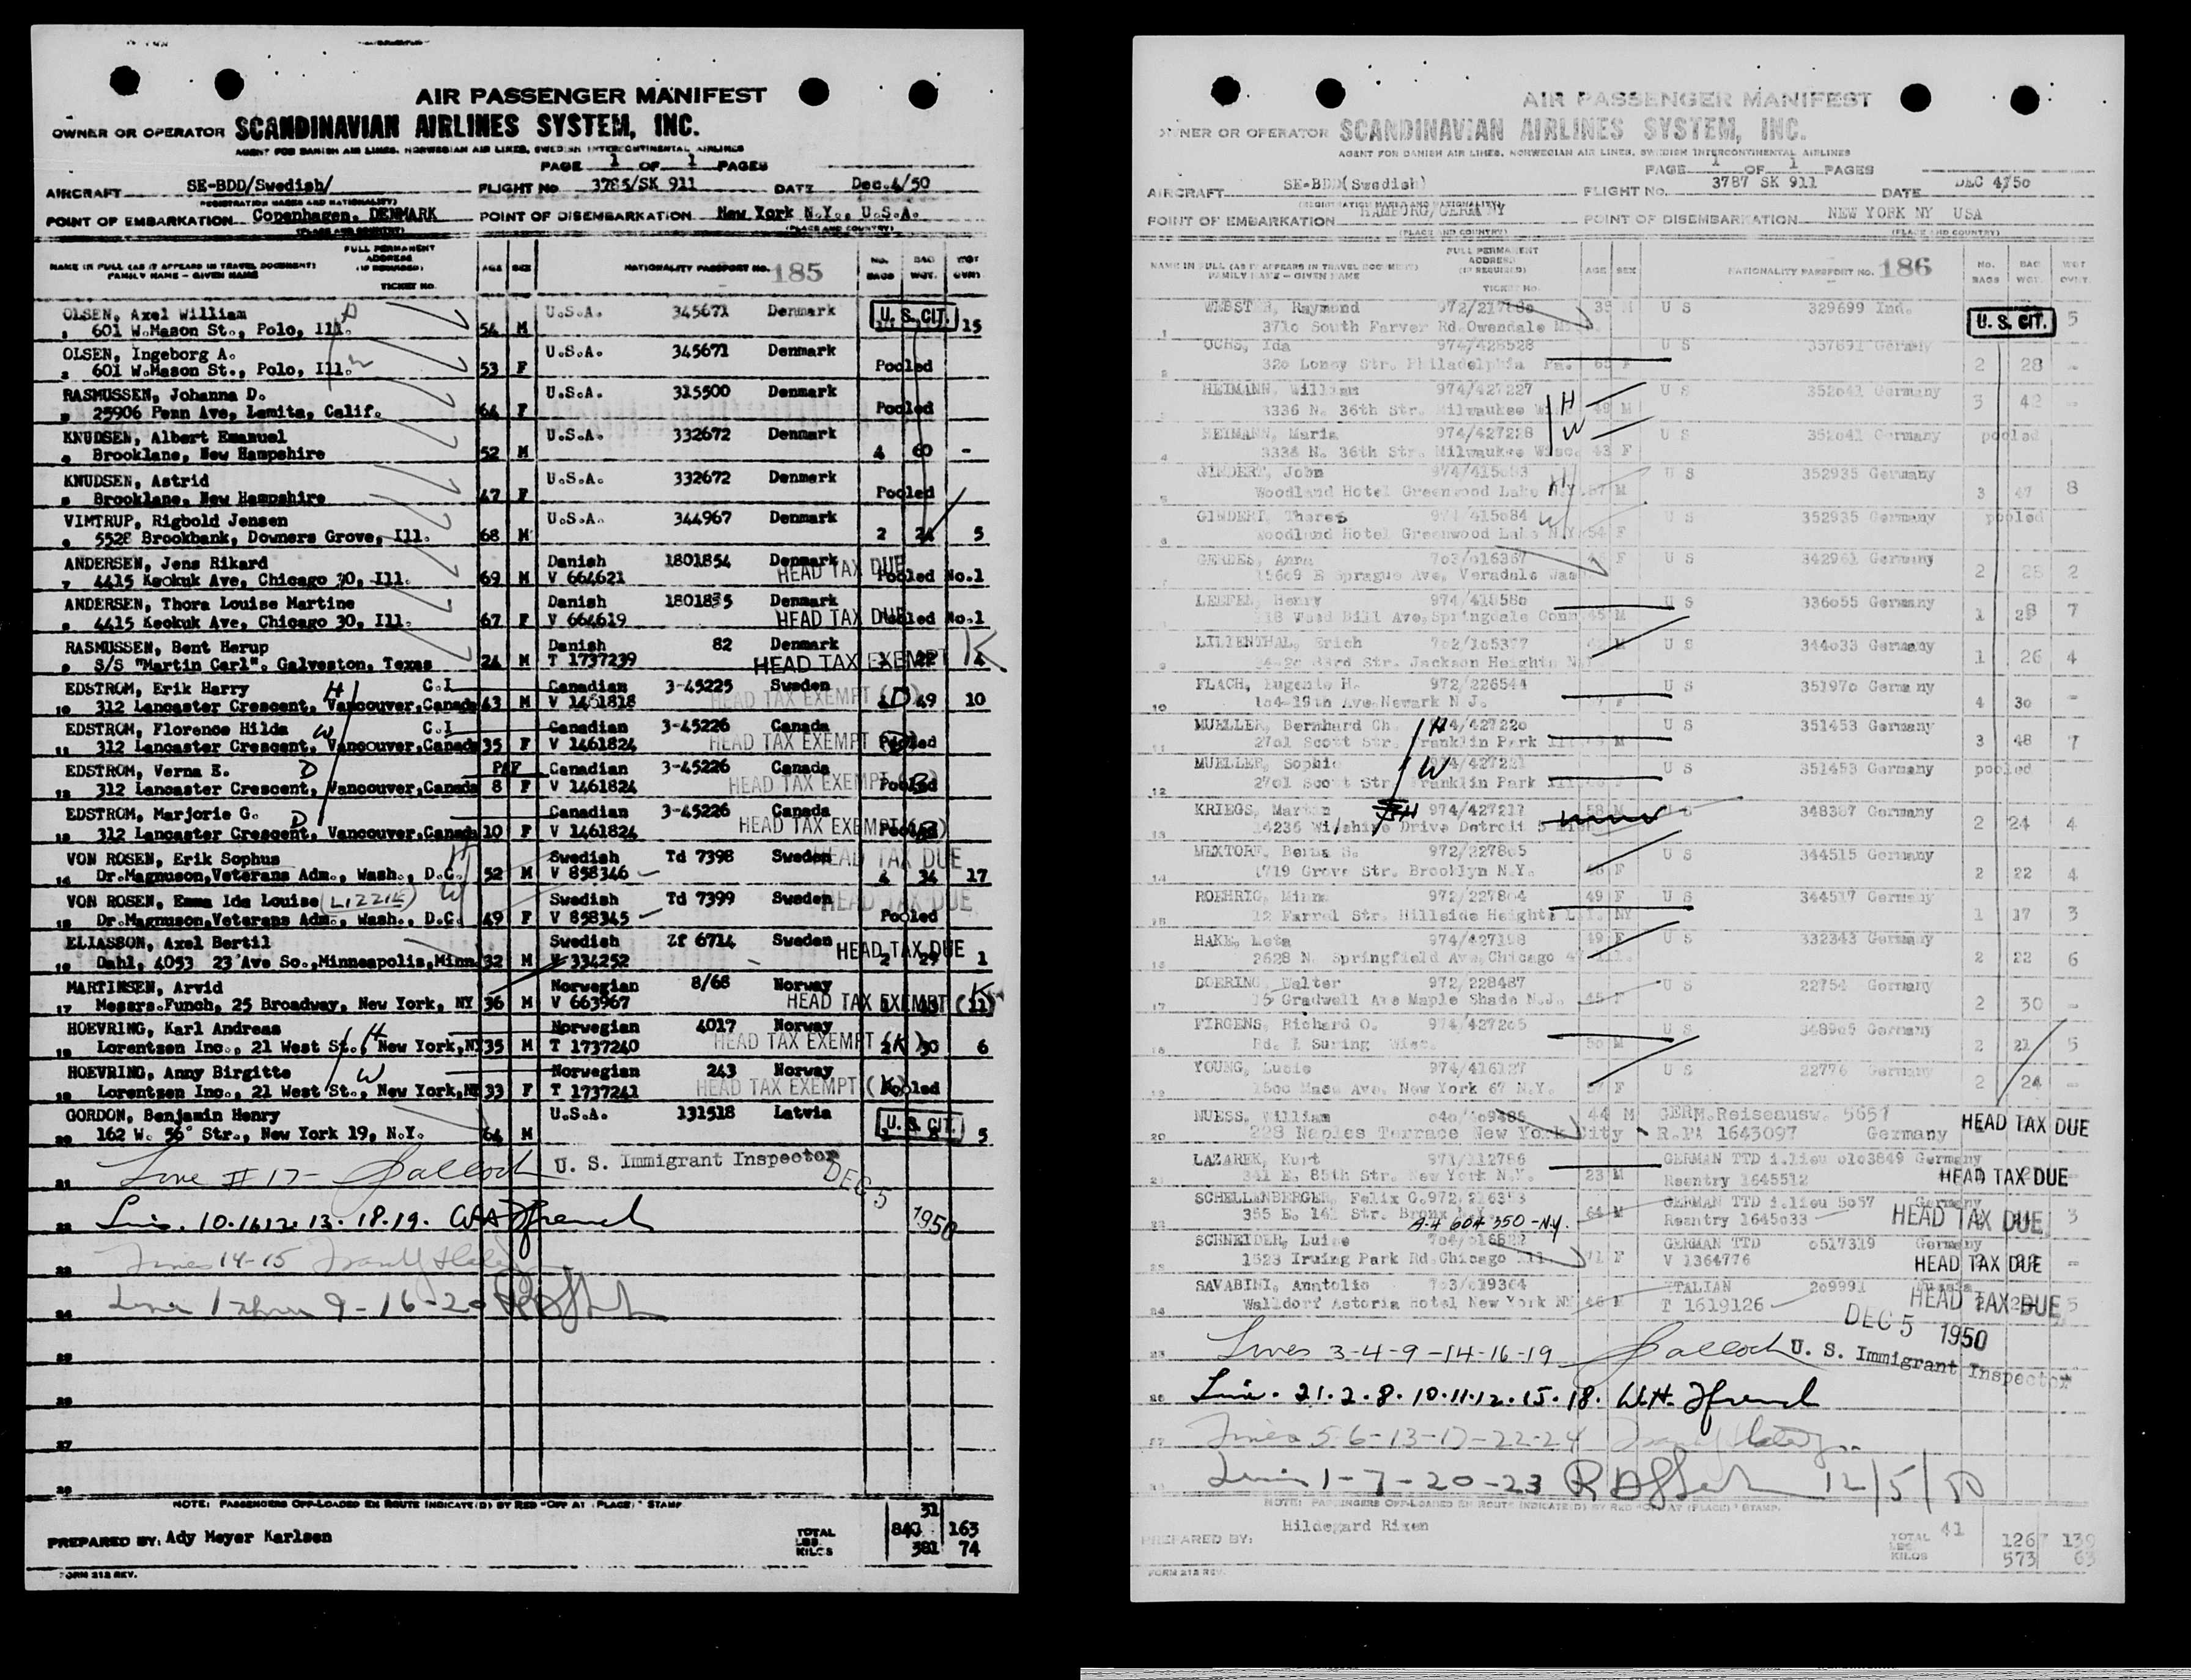 AIR PASSENGER MANIFEST
OWNER OR OPERATOR SCANDINAVIAN AIRLINES SYSTEM, INC.
AGENT FOR DANISH AIR LINES, NORWEGIAN AIR LINES, SWEDISH INTERCONTINENTAL AIRLINES
PAGE 1 OF 1 PAGES
AIRCRAFT SE-BDD/Swedish/ FLIGHT NO. 3785/SK 911 DATE Dec.4/50
(REGISTRATION MARKS AND NATIONALITY)
POINT OF EMBARKATION Copenhagen, DENMARK POINT OF DISEMBARKATION New York N.Y., U.S.A.
(PLACE AND COUNTRY) (PLACE AND COUNTRY)
NAME IN FULL (AS IT APPEARS IN TRAVEL DOCUMENT) FAMILY NAME - GIVEN NAME FULL PERMANENT ADDRESS (IF REQUIRED) TICKET NO. AGE SEX NATIONALITY PASSPORT NO. 185 NO. BAGS BAG WGT. WGT OVWT
OLSEN, Axel William U.S.A. 345671 Denmark U. S. CIT.
1 601 W.Mason St., Polo, Ill. 54 M 15
OLSEN, Ingeborg A. U.S.A. 345671 Denmark
2 601 W.Mason St., Polo, Ill. 53 F Pooled
RASMUSSEN, Johanna D. U.S.A. 315500 Denmark
25906 Penn Ave, Lomita, Calif. 64 F Pooled
KNUDSEN, Albert Emanuel U.S.A. 332672 Denmark
4 Brooklane, New Hampshire 52 M 4 60 -
KNUDSEN, Astrid U.S.A. 332672 Denmark
Brooklane, New Hampshire 47 F Pooled
VIMTRUP, Rigbold Jensen U.S.A. 344967 Denmark
5528 Brookbank, Downers Grove, Ill. 68 M 2 24 5
ANDERSEN, Jens Rikard Danish 1801854 Denmark HEAD TAX DUE
7 4415 Keokuk Ave, Chicago 30, Ill. 69 M V 664621 Pooled No.1
ANDERSEN, Thora Louise Martine Danish 1801835 Denmark
4415 Keokuk Ave, Chicago 30, Ill. 67 F V 664619 HEAD TAX DUE Pooled No.1
RASMUSSEN, Bent Herup Danish 82 Denmark K
S/S "Martin Carl", Galveston, Texas 24 M T 1737239 HEAD TAX EXEMPT 22 4
EDSTROM, Erik Harry H C.I Canadian 3-45225 Sweden
10 312 Lancaster Crescent, Vancouver,Canada 43 M V 1461818 HEAD TAX EXEMPT (D) 49 10
EDSTROM, Florence Hilda W C.I Canadian 3-45226 Canada
11 312 Lancaster Crescent, Vancouver,Canada 35 F V 1461824 HEAD TAX EXEMPT Pooled
EDSTROM, Verna E. D Canadian 3-45226 Canada
12 312 Lancaster Crescent, Vancouver,Canada 8 F V 1461824 HEAD TAX EXEMPT Pooled
EDSTROM, Marjorie G. D Canadian 3-45226 Canada
13 312 Lancaster Crescent, Vancouver,Canada 10 F V 1461824 HEAD TAX EXEMPT Pooled
VON ROSEN, Erik Sophus H Swedish Td 7398 Sweden HEAD TAX DUE
14 Dr.Magnuson,Veterans Adm., Wash., D.C. 52 M V 858346 4 34 17
VON ROSEN, Emma Ida Louise (LIZZIE) W Swedish Td 7399 Sweden HEAD TAX DUE
15 Dr.Magnuson,Veterans Adm., Wash., D.C. 49 F V 858345 Pooled
ELIASSON, Axel Bertil Swedish Zf 6714 Sweden HEAD TAX DUE
16 Dahl, 4053 23 Ave So.,Minneapolis,Minn 32 M V 334252 2 29 1
MARTINSEN, Arvid Norwegian 8/68 Norway
17 Messrs.Funch, 25 Broadway, New York, NY 36 M V 663967 HEAD TAX EXEMPT
HOEVRING, Karl Andreas H Norwegian 4017 Norway
18 Lorentsen Inc., 21 West St., New York,NY 35 M T 1737240 HEAD TAX EXEMPT (K) 30 6
HOEVRING, Anny Birgitte W Norwegian 243 Norway
19 Lorentsen Inc., 21 West St., New York,NY 33 F T 1737241 HEAD TAX EXEMPT (K) Pooled
GORDON, Benjamin Henry U.S.A. 131518 Latvia U. S. CIT.
20 162 W. 56° Str., New York 19, N.Y. 64 M 5
21 Line # 17 - U. S. Immigrant Inspector DEC 5 1950
22 10.11.12. 13. 18.19.
23 Lines 14-15
24 Line 1 thru 9 - 16 - 20
25
26
27
28
NOTE: PASSENGERS OFF-LOADED EN ROUTE INDICATE(D) BY RED "OFF AT (PLACE)" STAMP
31
PREPARED BY: Ady Meyer Karlsen TOTAL LBS 840 163
KILOS 381 74
FORM 212 REV.
AIR PASSENGER MANIFEST
OWNER OR OPERATOR SCANDINAVIAN AIRLINES SYSTEM, INC.
AGENT FOR DANISH AIR LINES, NORWEGIAN AIR LINES, SWEDISH INTERCONTINENTAL AIRLINES
PAGE 1 OF 1 PAGES
AIRCRAFT SE-BDD(Swedish) FLIGHT NO. 3787 SK 911 DATE DEC 4/50
(REGISTRATION MARKS AND NATIONALITY)
POINT OF EMBARKATION HAMBURG/GERMANY POINT OF DISEMBARKATION NEW YORK NY USA
(PLACE AND COUNTRY) (PLACE AND COUNTRY)
NAME IN FULL (AS IT APPEARS IN TRAVEL DOCUMENT) FAMILY NAME - GIVEN NAME FULL PERMANENT ADDRESS (IF REQUIRED) TICKET NO. AGE SEX NATIONALITY PASSPORT NO. 186 NO. BAGS BAG WGT. WGT OVWT.
WEBSTER, Raymond 35 M U S 329699 Ind.
1 3710 South Farver Rd. Owendale U. S. CIT. 5
OCHS, Ida 974/428528 U S 357691 Germany
2 320 Loney Str. Philadelphia Pa. 65 F 2 28 -
HEIMANN, William 974/427227 H U S 352041 Germany
3336 N. 36th Str. Milwaukee Wisc. 49 M 3 42 -
HEIMANN, Maria 974/427228 W U S 352041 Germany pooled
4 3336 N. 36th Str. Milwaukee Wisc. 43 F
GINDERT, John H U S 352935 Germany
5 Woodland Hotel Greenwood Lake N.Y. 57 M 3 47 8
GINDERT, Theres 974/415084 W U S 352935 Germany pooled
6 Woodland Hotel Greenwood Lake N.Y. 54 F
GERDES, Anna 703/016367 F U S 342961 Germany
15609 E Sprague Ave, Veradale Wash. 2 25 2
Henry U S 336055 Germany
Wood Bill Ave, Springdale Conn 45 M 1 28 7
LILIENTHAL, Erich 702/105377 M U S 344033 Germany
9 83rd Str. Jackson Heights N.Y. 1 26 4
FLACH, Eugenie H. 972/226544 U S 351970 Germany
10 104-19th Ave Newark N J. F 4 30 -
MUELLER, Bernhard Ch. H 974/427220 U S 351453 Germany
11 2701 Scott Str. Franklin Park M 3 48 7
MUELLER, Sophie W 974/427221 U S 351453 Germany pooled
12 2701 Scott Str. Franklin Park
KRIEGS, Martin 58 M U S 348387 Germany
13 14236 Wilshire Drive Detroit 5 2 24 4
MEXTORF, Berna S. 972/227805 U S 344515 Germany
14 1719 Grove Str. Brooklyn N.Y. F 2 22 4
ROEHRIG, Minna 972/227804 49 F U S 344517 Germany
12 Farrel Str. Hillside Heights L.I. NY 1 17 3
HAKE, Meta 974/427198 49 F U S 332343 Germany
2628 N. Springfield Ave, Chicago 2 22 6
DOERING, Walter 972/228487 U S 22754 Germany
17 15 Gradwell Ave Maple Shade N.J. 45 2 30 -
FIRGENS, Richard O. 974/427205 U S 348905 Germany
18 Rd. 1 Suring Wisc. 50 M 2 21 5
YOUNG, Lucie 974/416127 U S 22776 Germany
1500 Mace Ave. New York 67 N.Y. F 2 24 -
NUESS, William 44 M GERM.Reiseausw. 5657 HEAD TAX DUE
20 228 Naples Terrace New York City R.P. 1643097 Germany
LAZAREK, Kurt 971/112766 GERMAN TTD i.lieu 0103849 Germany
341 E. 85th Str. New York N.Y. 23 M Reentry 1645512 HEAD TAX DUE
SCHELLENBERGER, Felix G. GERMAN TTD i.lieu 5057 Germany
22 355 E. 14 Str. Bronx N.Y. A-4 604 350 - N.Y. 64 M Reentry 1645033 HEAD TAX DUE 3
SCHNEIDER, Luise GERMAN TTD 0517319 Germany
23 1523 Irving Park Rd. Chicago Ill. 71 F V 1364776 HEAD TAX DUE -
SAVABINI, Anatolio 703/019364 ITALIAN 209991
24 Walldorf Astoria Hotel New York NY 46 M T 1619126 HEAD TAX DUE 5
DEC 5 1950
25 Lines 3-4-9-14-16-19 U. S. Immigrant Inspector
26 21.2.8.10.11.12.15.18.
27 Lines 5 6-13-17-22-24
1-7-20-23 12/5/50
NOTE: PASSENGERS OFF-LOADED EN ROUTE INDICATE(D) BY RED "OFF AT (PLACE)" STAMP.
PREPARED BY: Hildegard Rixen TOTAL 41
LBS 1267 139
KILOS 573 63
FORM 212 REV.